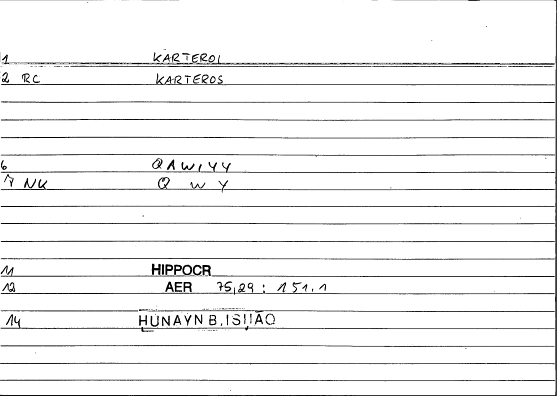 1 KARTEROI
2 RC KARTEROS
6 QAWIYY
7 NK Q W Y
11 HIPPOCR
12 AER 75,29 : 151.1
14 HUNAYN B. ISHAQ